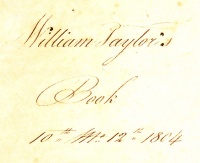 William Taylor's
Book
10th Mo 12th 1804